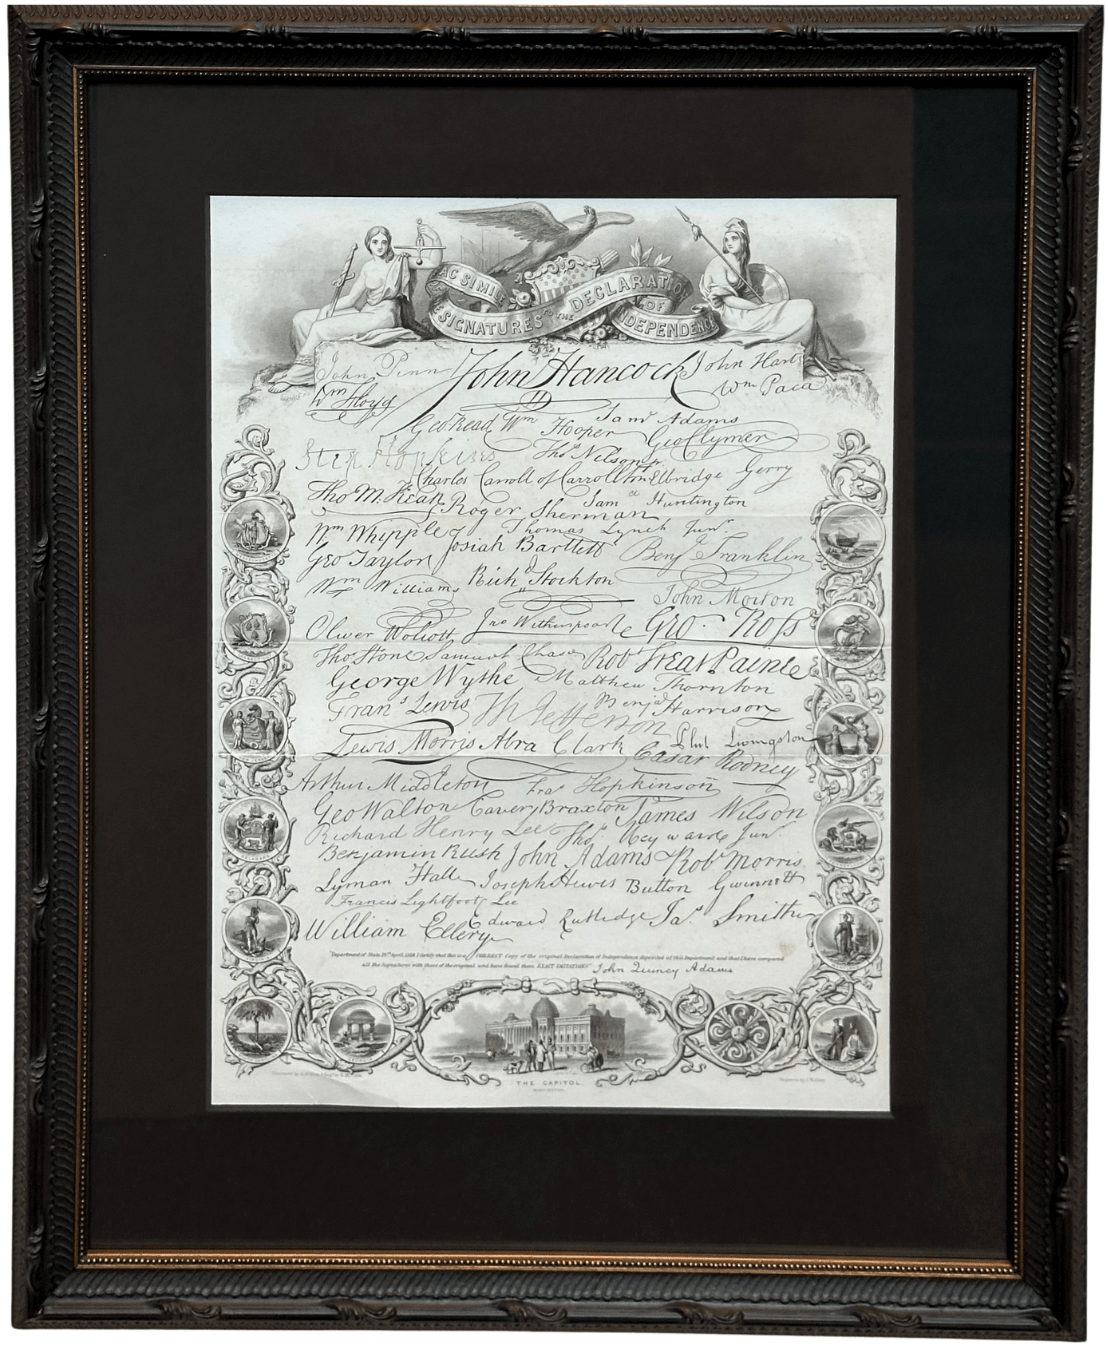 FAC SIMILE
OF THE SIGNATURES TO THE DECLARATION OF INDEPENDENCE
John Penn John Hancock John Hart
Wm Floyd Wm Paca
Geo Read Wm Hooper Saml Adams
Geo Clymer
Step Hopkins Thos Nelson jr
Charles Carroll of Carrollton Elbridge Gerry
Tho M:Kean Roger Sherman Saml Huntington
Wm Whipple Thomas Lynch Junr
Josiah Bartlett Benj Franklin
Geo Taylor
Wm Williams Richd Stockton John Morton
Oliver Wolcott Jno Witherspoon Geo. Ross
Thos Stone Samuel Chase Robt Treat Paine
George Wythe Matthew Thornton
Frans Lewis Th Jefferson Benja Harrison
Lewis Morris Abra Clark Phil Livingston
Cæsar Rodney
Arthur Middleton Fras Hopkinson
Geo Walton Carter Braxton James Wilson
Richard Henry Lee Thos Heyward Junr
Benjamin Rush John Adams Robt Morris
Lyman Hall Joseph Hewes Button Gwinnett
Francis Lightfoot Lee
William Ellery Edward Rutledge Jas Smith
Department of State, April, I Certify that this is a CORRECT Copy of the original Declaration of Independence deposited at this Department and that I have compared
all the Signatures with those of the original and have found them EXACT IMITATIONS" John Quincy Adams
THE CAPITOL